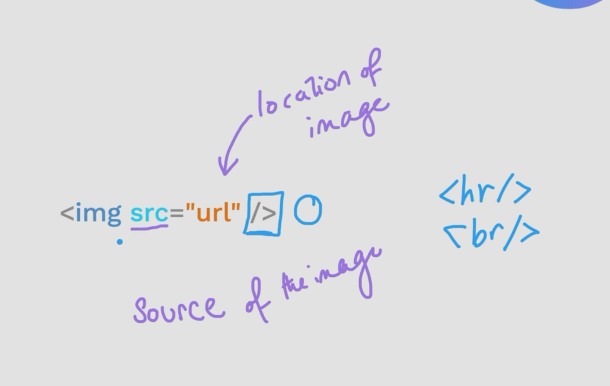 location of
image
<img src="url" />
<hr/>
<br/>
Source of the image